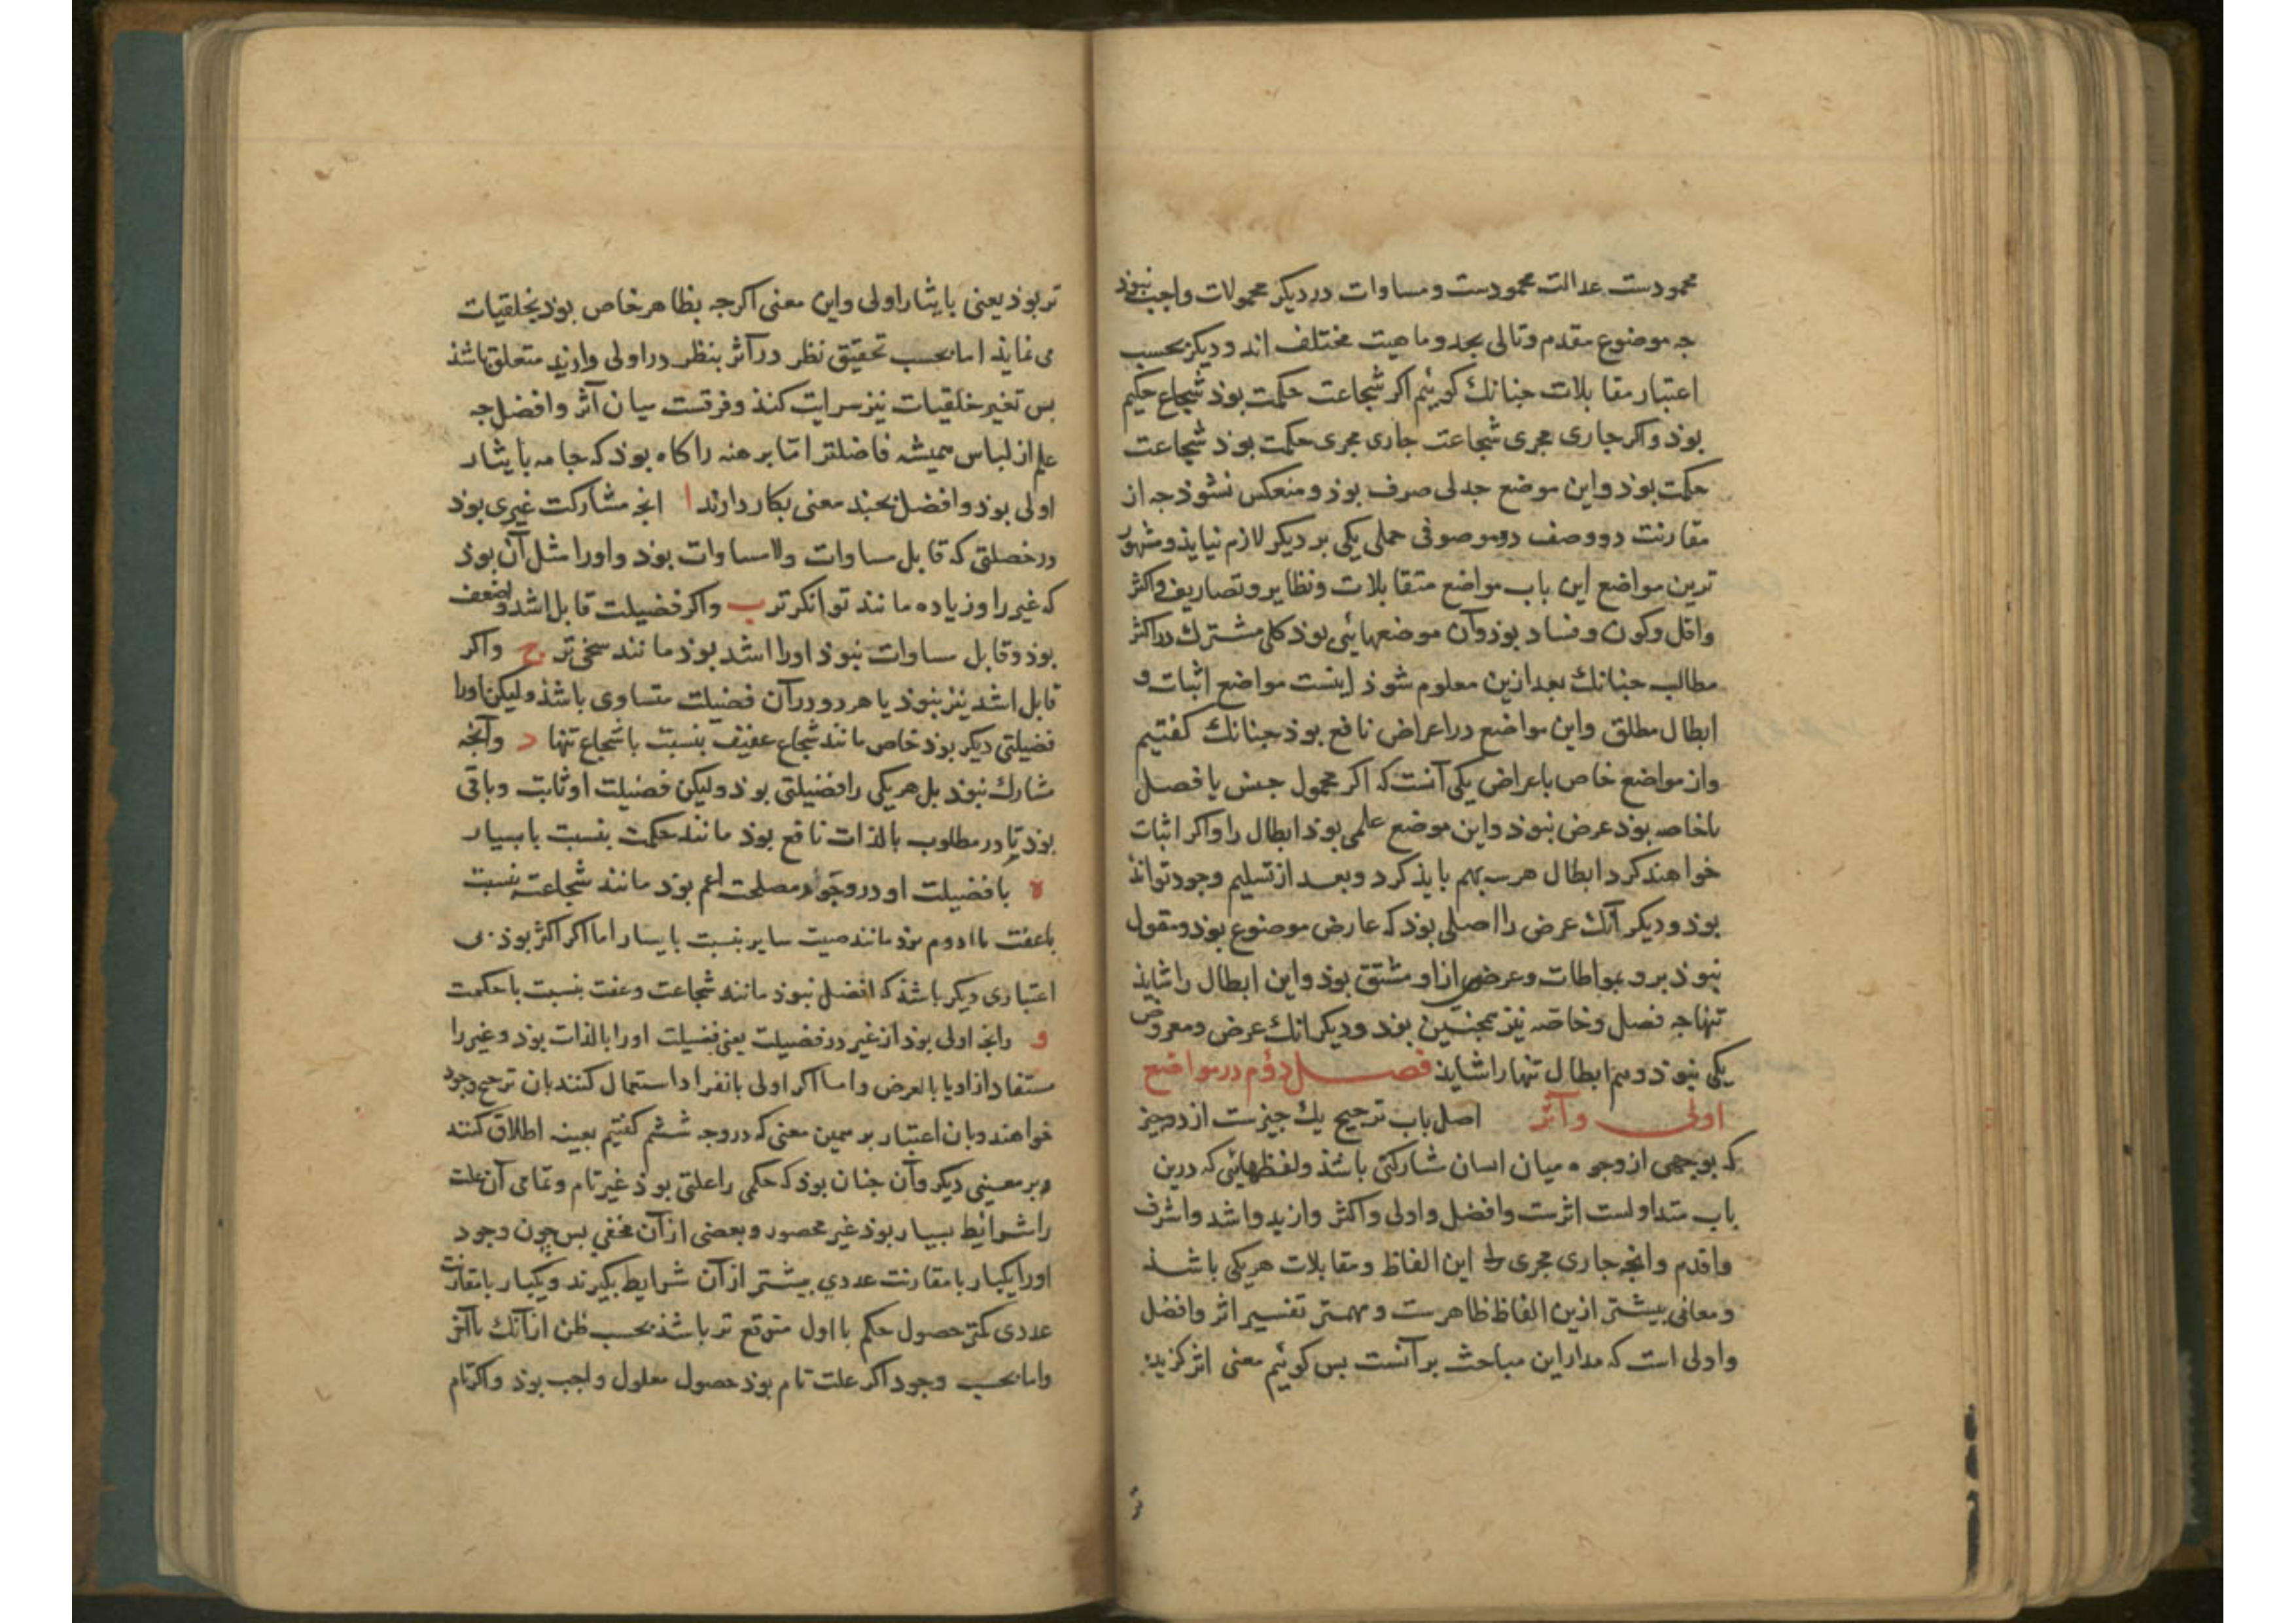 محمودست عدالت محمودست و مساوات در دیکر محمولات واجب نبوذ
جه موضوع مقدم و تالی بحد و ماهیت مختلف اند و دیکر بحسب
اعتبار مقابلات جنانك کوییم اکر شجاعت حکمت بوذ شجاع حکیم
بوذ و اکر جاری مجری شجاعت جاری مجری حکمت بوذ شجاعت
حکمت بوذ و این موضع جدلی صرف بوذ و منعکس نشوذ جه از
مقارنت دو وصف دو موصوف حملی یکی بر دیکر لازم نیایذ و مشهور
ترین مواضع این باب مواضع متقابلات و نظایر و تصاریف و اکثر
و اقل و کون و فساد بوذ و آن موضعهائی بوذ کلی مشترك در اکثر
مطالب جنانك بعد ازین معلوم شوذ اینست مواضع اثبات و
ابطال مطلق و این مواضع در اعراض نافع بوذ جنانك کفتیم
و از مواضع خاص باعراض یکی آنست که اکر محمول جنس یا فصل
یا خاصه بوذ عرض نبوذ و این موضع علمی بوذ ابطال را و اکر اثبات
خواهند کرد ابطال هر سه بهم بایذ کرد و بعد از تسلیم وجود تواند
بوذ و دیکر آنك عرض را اصلی بوذ که عارض موضوع بوذ و مقول
نبوذ برو بمواطات و عرض ازو مشتق بوذ و این ابطال را شایذ
تنها جه فصل و خاصه نیز همجنین بوذ و دیکر انك عرض و معروض
یکی نبوذ و هم ابطال تنها را شایذ فصل دوم در مواضع
اولی و آثر اصل باب ترجیح یك جیزست از دو جیز
که بوجهی از وجوه میان ایشان مشارکتی باشذ و لفظهائی که درین
باب متداولست اثرست و افضل و اولی و اکثر و ازید و اشد و اشرف
و اقدم و انجه جاری مجری این الفاظ و مقابلات هر یکی باشذ
و معانی بیشتر ازین الفاظ ظاهرست و مهمتر تفسیر اثر و افضل
و اولی است که مدار این مباحث بر آنست بس کوئیم معنی اثر کزیده
تر
تر بوذ یعنی بایثار اولی و این معنی اکرجه بظاهر خاص بوذ بخلقیات
می نمایذ اما بحسب تحقیق نظر در آثر بنظر در اولی و ازید متعلق باشذ
بس تغیر خلقیات نیز سرایت کنذ و فرقست میان آثر و افضل جه
علم از لباس همیشه فاضلتر اما برهنه را کاه بوذ که جامه بایثار
اولی بوذ و افضل بجند معنی بکار دارند ا انجه مشارکت غیری بوذ
در خصلتی که قابل مساوات و لا مساوات بوذ و اورا مثل آن بوذ
که غیر را و زیاده مانند توانکرتر ب و اکر فضیلت قابل اشد و اضعف
بوذ و قابل مساوات نبوذ اورا اشد بوذ مانند سخی تر ج و اکر
قابل اشد نیز نبوذ یا هر دو در آن فضیلت متساوی باشذ و لیکن اورا
فضیلتی دیکر بوذ خاص مانند شجاع عفیف بنسبت با شجاع تنها د و آنجه
مشارك نبوذ بل هر یکی را فضیلتی بوذ و لیکن فضیلت او ثابت و باقی
بوذ یا در مطلوب بالذات نافع بوذ مانند حکمت بنسبت با یسار
ه یا فضیلت او در وجود مصلحت اعم بوذ مانند شجاعت بنسبت
با عفت یا ادوم بوذ مانند صیت سایر بنسبت با یسار اما اکر اکثر بوذ بی
اعتباری دیکر باشذ که افضل نبوذ مانند شجاعت و عفت بنسبت با حکمت
و وانجه اولی بوذ از غیر در فضیلت یعنی فضیلت اورا بالذات بوذ و غیر را
مستفاد ازو یا بالعرض و اما اکر اولی بانفراد استعمال کنند بان ترجیح وجود
خواهند و بان اعتبار بر همین معنی که در وجه ششم کفتیم بعینه اطلاق کنند
و بر معنیی دیکر و آن جنان بوذ که حکمی را علتی بوذ غیر تام و تمامی آن علت
را شرائط بسیار بوذ غیر محصور و بعضی از آن مخفی بس جون وجود
اورا یکبار با مقارنت عددی بیشتر از آن شرایط بکیرند و یکبار با مقارنت
عددی کمتر حصول حکم با اول متوقع تر باشذ بحسب ظن از آنك با آخر
و اما بحسب وجود اکر علت تام بوذ حصول معلول واجب بوذ و اکر تام